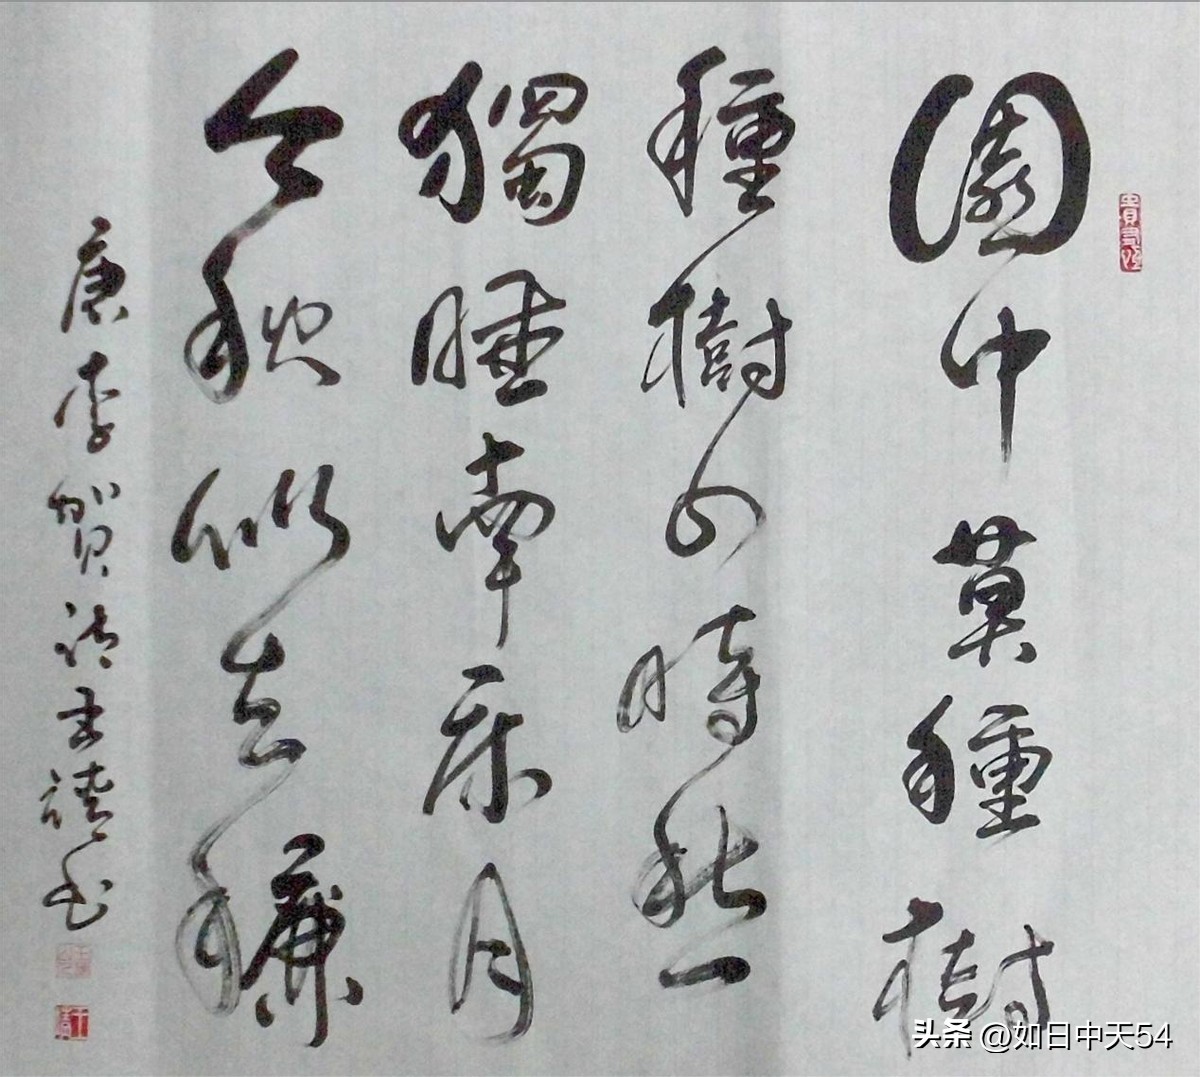 園中莫種樹
種樹四時愁
獨睡南床月
今秋似去秋
唐李賀詩
头条 @如日中天54